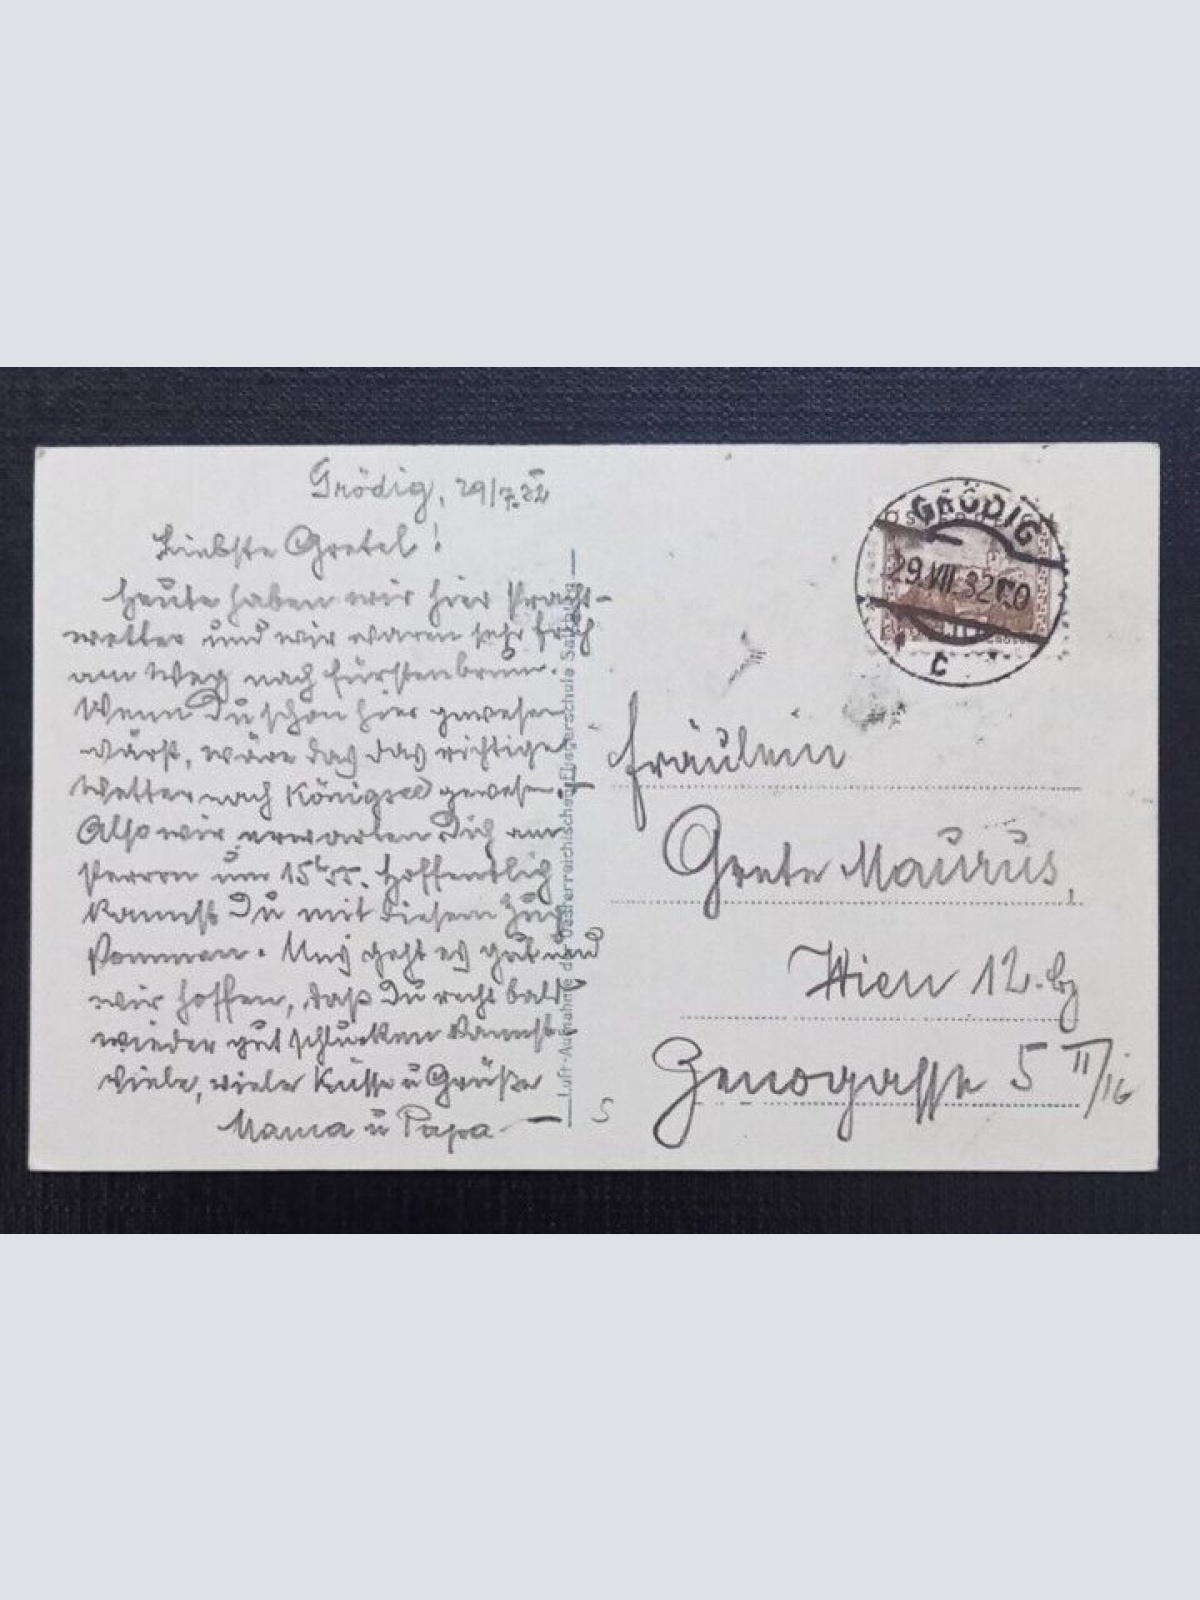 Grödig, 29/7.32
Liebste Gretel!
Heute haben wir hier Pracht-
wetter und wir waren sehr früh
am Weg nach Fürstenbrunn.
Wenn Du schon hier gewesen
wärst, wäre das das richtige
Wetter nach Königsee gewesen. –
Also wir erwarten Dich am
Perron um 15h 55. Hoffentlich
kannst Du mit diesem Zug
kommen. Uns geht es gut und
wir hoffen, daß Du recht bald
wieder gut schlucken kannst.
Viele, viele Küsse u Grüße
Mama u Papa –
Luft-Aufnahme der Oesterreichischen Fliegerschule Salzburg
GRÖDIG
29.VII.32
c
Fräulein
Grete Maurus,
Wien 12. Bz
Zenogasse 5 II/16
S